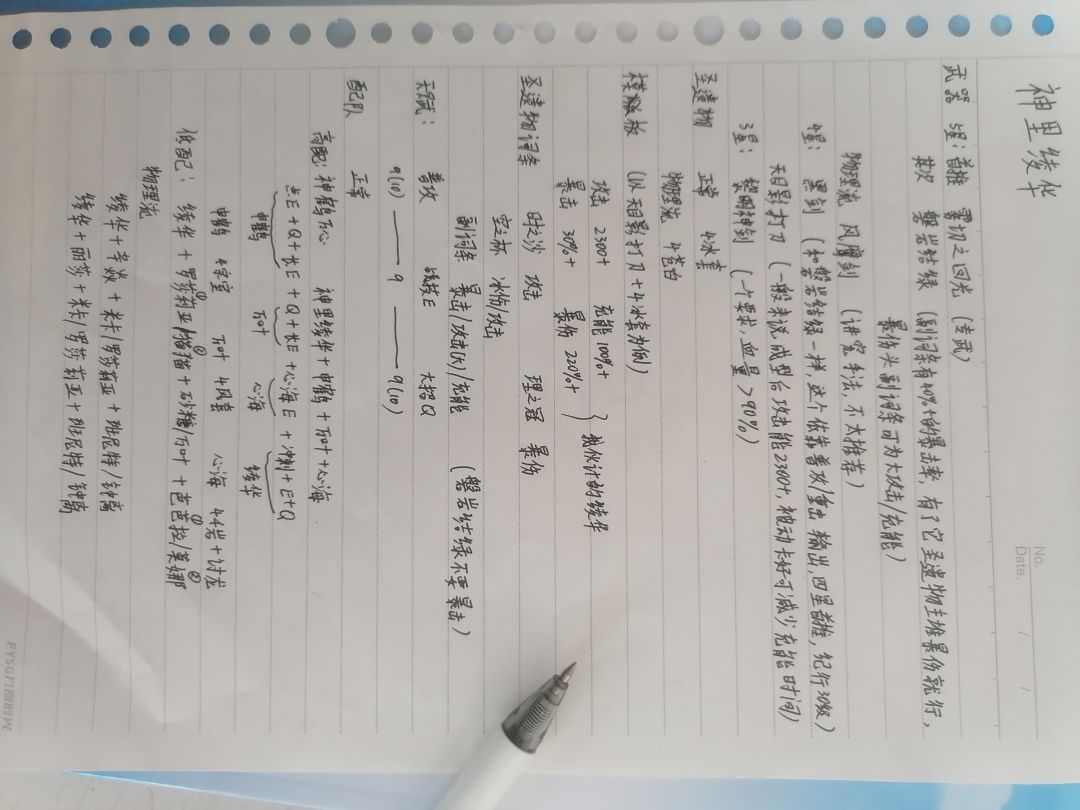 神里绫华
No.
Date.
武器 5星：首推 雾切之回光 （专武）
其次 磐岩结绿 （副词条有40%+的暴击率，有了它圣遗物主堆暴伤就行，
暴伤头副词条可为大攻击/充能）
物理流 风鹰剑 （讲究手法，不太推荐）
4星：黑剑 （和磐岩结绿一样，这个依靠普攻/重击输出，四星首推，纪行30级）
天目影打刀 （一般来说成型后攻击能2300+，被动卡好可减少充能时间）
3星：黎明神剑 （一个要求，血量>90%）
圣遗物 正常 4冰套
物理流 4苍白
模版板 （以天目影打刀+4冰套为例）
攻击 2300+ 充能 100%+
暴击 30%+ 暴伤 220%+ } 我伙计的绫华
圣遗物词条 时之沙 攻击 理之冠 暴伤
空之杯 冰伤/攻击
副词条 暴击/攻击(大)/充能 （磐岩结绿不要暴击）
天赋： 普攻 战技E 大招Q
9(10) —— 9 —— 9(10)
配队 正常
高配：神鹤万心 神里绫华+申鹤+万叶+心海
点E+Q+长E+Q+长E+心海E+冲刺+E+Q
申鹤 万叶 心海 绫华
申鹤 4宗室 万叶 4风套 心海 4千岩+讨龙
低配： 绫华+罗莎莉亚①/猫猫②+砂糖/万叶+芭芭拉①/莫娜②
物理流
绫华+辛焱+米卡/罗莎莉亚+班尼特/钟离
绫华+丽莎+米卡/罗莎莉亚+班尼特/钟离